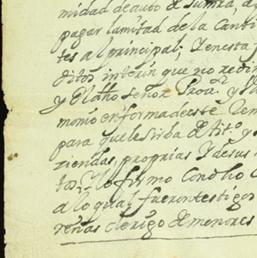 midad de auto de
pagar la mitad de la Canti
tes al principal; Yen esta
ditos interin que no redim
y El dho Señor Prou.or y
monio en forma de este
para que le sirba de tit.o y
ziendas, proprias Y de sus
tos, Y lo firmo Con dho
a lo qual fueron testigos
reñas clerigo de menores